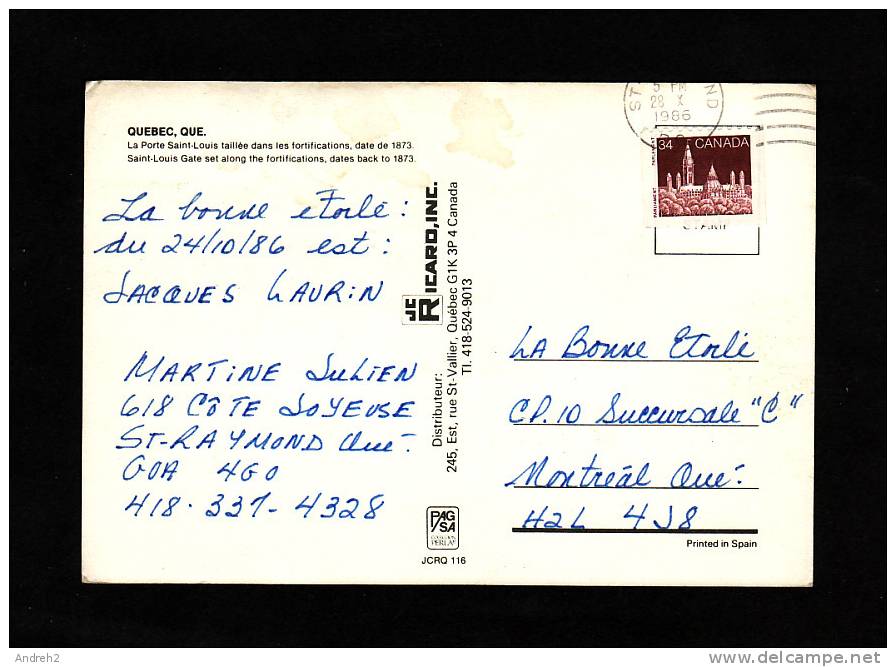 QUEBEC, QUE.
La Porte Saint-Louis taillée dans les fortifications, date de 1873.
Saint-Louis Gate set along the fortifications, dates back to 1873.
La bonne étoile :
du 24/10/86 est :
JACQUES LAURIN
MARTINE JULIEN
618 CÔTE JOYEUSE
ST-RAYMOND Qué.
GOA 4G0
418-337-4328
JC RICARD, INC.
Distributeur:
245, Est, rue St-Vallier, Québec G1K 3P 4 Canada
Tl. 418-524-9013
PAG
SA
JCRQ 116
5 PM
28 X
1986
34 CANADA
PARLIAMENT
PARLEMENT
LA Bonne Etoile
CP. 10 Succursale "C"
Montréal Qué.
H2L 4J8
Printed in Spain
Andreh2
www.delcampe.net